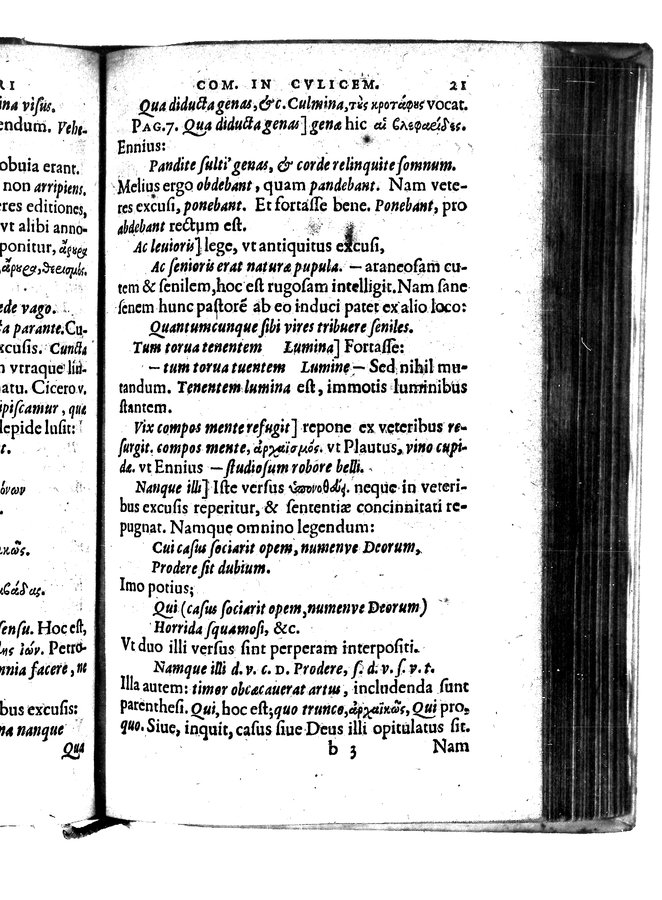 RI
ina visus.
endum. Vehe-
obuia erant.
non arripiens,
eres editiones,
vt alibi anno-
ponitur, ἄρυρα
ede vago.
ta parante. Cu-
xcusis. Cuncta
n vtraque lin-
natu. Cicero v.
ipiscamur, quæ
lepide lusit:
t.
όνων
κῶς.
sensu. Hoc est,
Petro-
nnia facere, ne
bus excusis:
na nanque
Qua
COM. IN CVLICEM. 21
Qua diducta genas, &c. Culmina, τὺς κροτάφυς vocat.
PAG. 7. Qua diducta genas] genæ hic αἱ βλεφαρίδες.
Ennius:
Pandite sulti' genas, & corde relinquite somnum.
Melius ergo obdebant, quam pandebant. Nam vete-
res excusi, ponebant. Et fortasse bene. Ponebant, pro
abdebant rectum est.
Ac leuioris] lege, vt antiquitus excusi,
Ac senioris erat naturæ pupula. — araneosam cu-
tem & senilem, hoc est rugosam intelligit. Nam sane
senem hunc pastorē ab eo induci patet ex alio loco:
Quantumcunque sibi vires tribuere seniles.
Tum torua tenentem Lumina] Fortasse:
— tum torua tuentem Lumine — Sed nihil mu-
tandum. Tenentem lumina est, immotis luminibus
stantem.
Vix compos mente refugit] repone ex veteribus re-
surgit. compos mente, ἀρχαϊσμός. vt Plautus, vino cupi-
dæ. vt Ennius — studiosum robore belli.
Nanque illi] Iste versus neque in veteri-
bus excusis reperitur, & sententiæ concinnitati re-
pugnat. Namque omnino legendum:
Cui casus sociarit opem, numenve Deorum,
Prodere sit dubium.
Imo potius;
Qui (casus sociarit opem, numenve Deorum)
Horrida squamosi, &c.
Vt duo illi versus sint perperam interpositi.
Namque illi d. v. c. D. Prodere, s. d. v. s. v. t.
Illa autem: timor obcæcauerat artus, includenda sunt
parenthesi. Qui, hoc est; quo trunco, ἀρχαϊκῶς, Qui pro,
quo. Siue, inquit, casus siue Deus illi opitulatus sit.
b 3 Nam